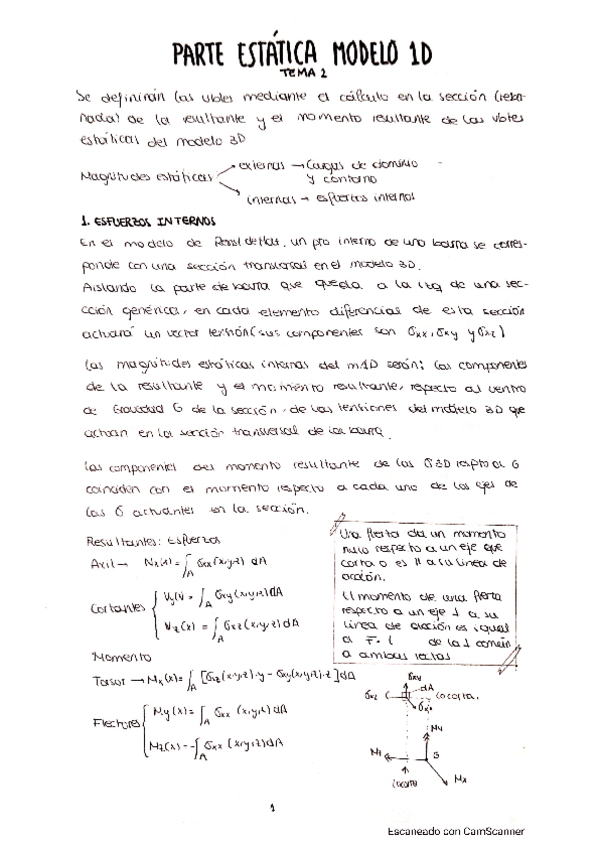 PARTE ESTÁTICA MODELO 1D
TEMA 2
Se definirán las vbles mediante el cálculo en la sección (relacio-
nada) de la resultante y el momento resultante de las vbles
estáticas del modelo 3D
Magnitudes estáticas
externas → Cargas de dominio
y contorno
internas → esfuerzos internos
1. ESFUERZOS INTERNOS
En el modelo de , un pto interno de una barra se corres-
ponde con una sección transversal en el modelo 3D.
Aislando la parte de barra que queda a la izq de una sec-
cción genérica, en cada elemento diferencial de esta sección
actuará un vector tensión (sus componentes son σxx, σxy y σxz)
Las magnitudes estáticas internas del m1D serán: las componentes
de la resultante y el momento resultante, respecto al centro
de Gravedad G de la sección, de las tensiones del modelo 3D que
actúan en la sección transversal de la barra.
Las componentes del momento resultante de las σ 3D respto a G
coinciden con el momento respecto a cada uno de los ejes de
las σ actuantes en la sección.
Resultantes: Esfuerzos
Axil → Nx(x) = ∫A σxx(x,y,z) dA
Cortantes
Vy(x) = ∫A σxy(x,y,z) dA
Vz(x) = ∫A σxz(x,y,z) dA
Momento
Torsor → Mx(x) = ∫A [σxz(x,y,z)·y - σxy(x,y,z)·z] dA
Flectores
My(x) = ∫A σxx (x,y,z) dA
Mz(x) = -∫A σxx (x,y,z) dA
Una fuerza da un momento
nulo respecto a un eje que
corta o es || a su línea de
acción.
El momento de una fuerza
respecto a un eje ⊥ a su
línea de acción es igual
a F · l de la ⊥ común
a ambas rectas
σxy
dA
σxz
(o corta.
σxx
My
Mz
G
Mx
(o corta
1
Escaneado con CamScanner